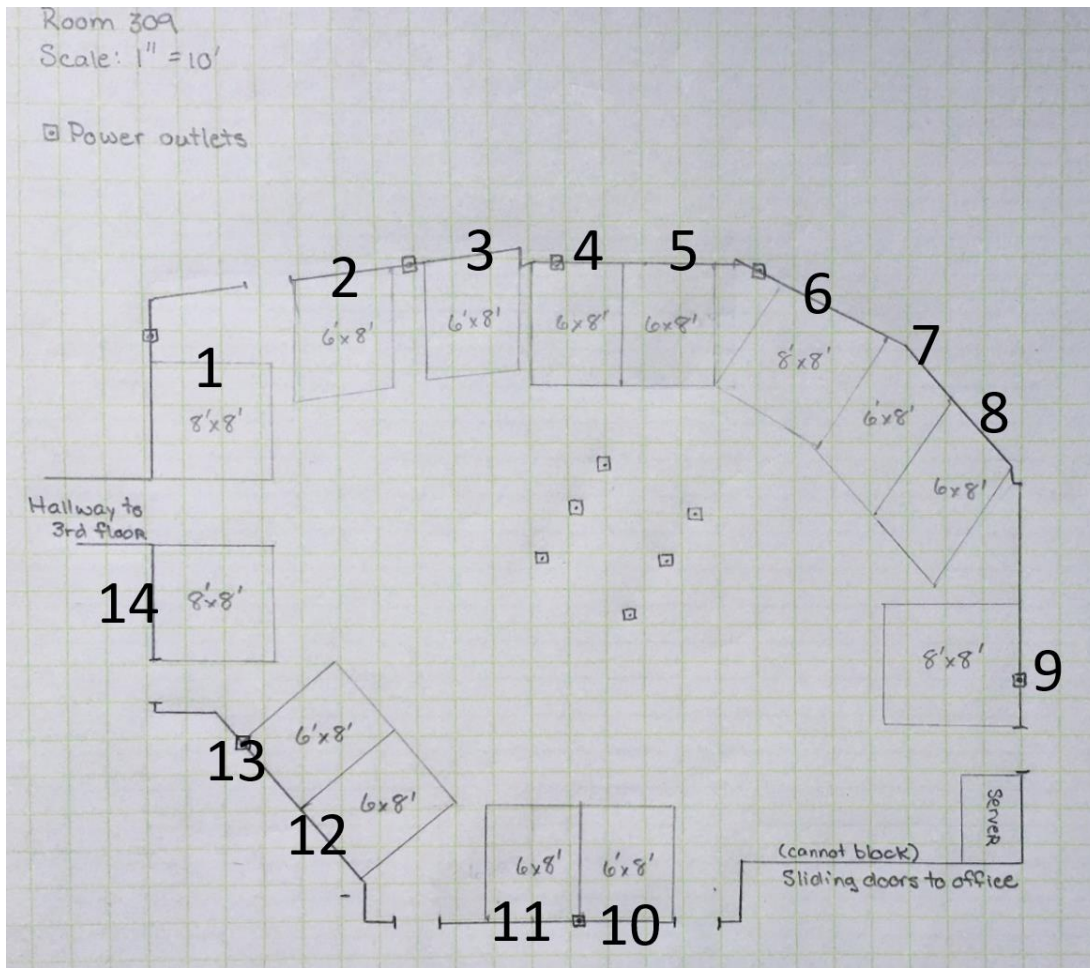 Room 309
Scale: 1" = 10'
Power outlets
2
3
4
5
6
1
6'x8'
6'x8'
6x8'
6x8'
8'x8'
7
8'x8'
6'x8'
8
6x8'
Hallway to
3rd floor
14
8'x8'
8'x8'
9
13
6'x8'
12
6x8'
6x8'
6'x8'
11
10
SERVER
(cannot block)
Sliding doors to office